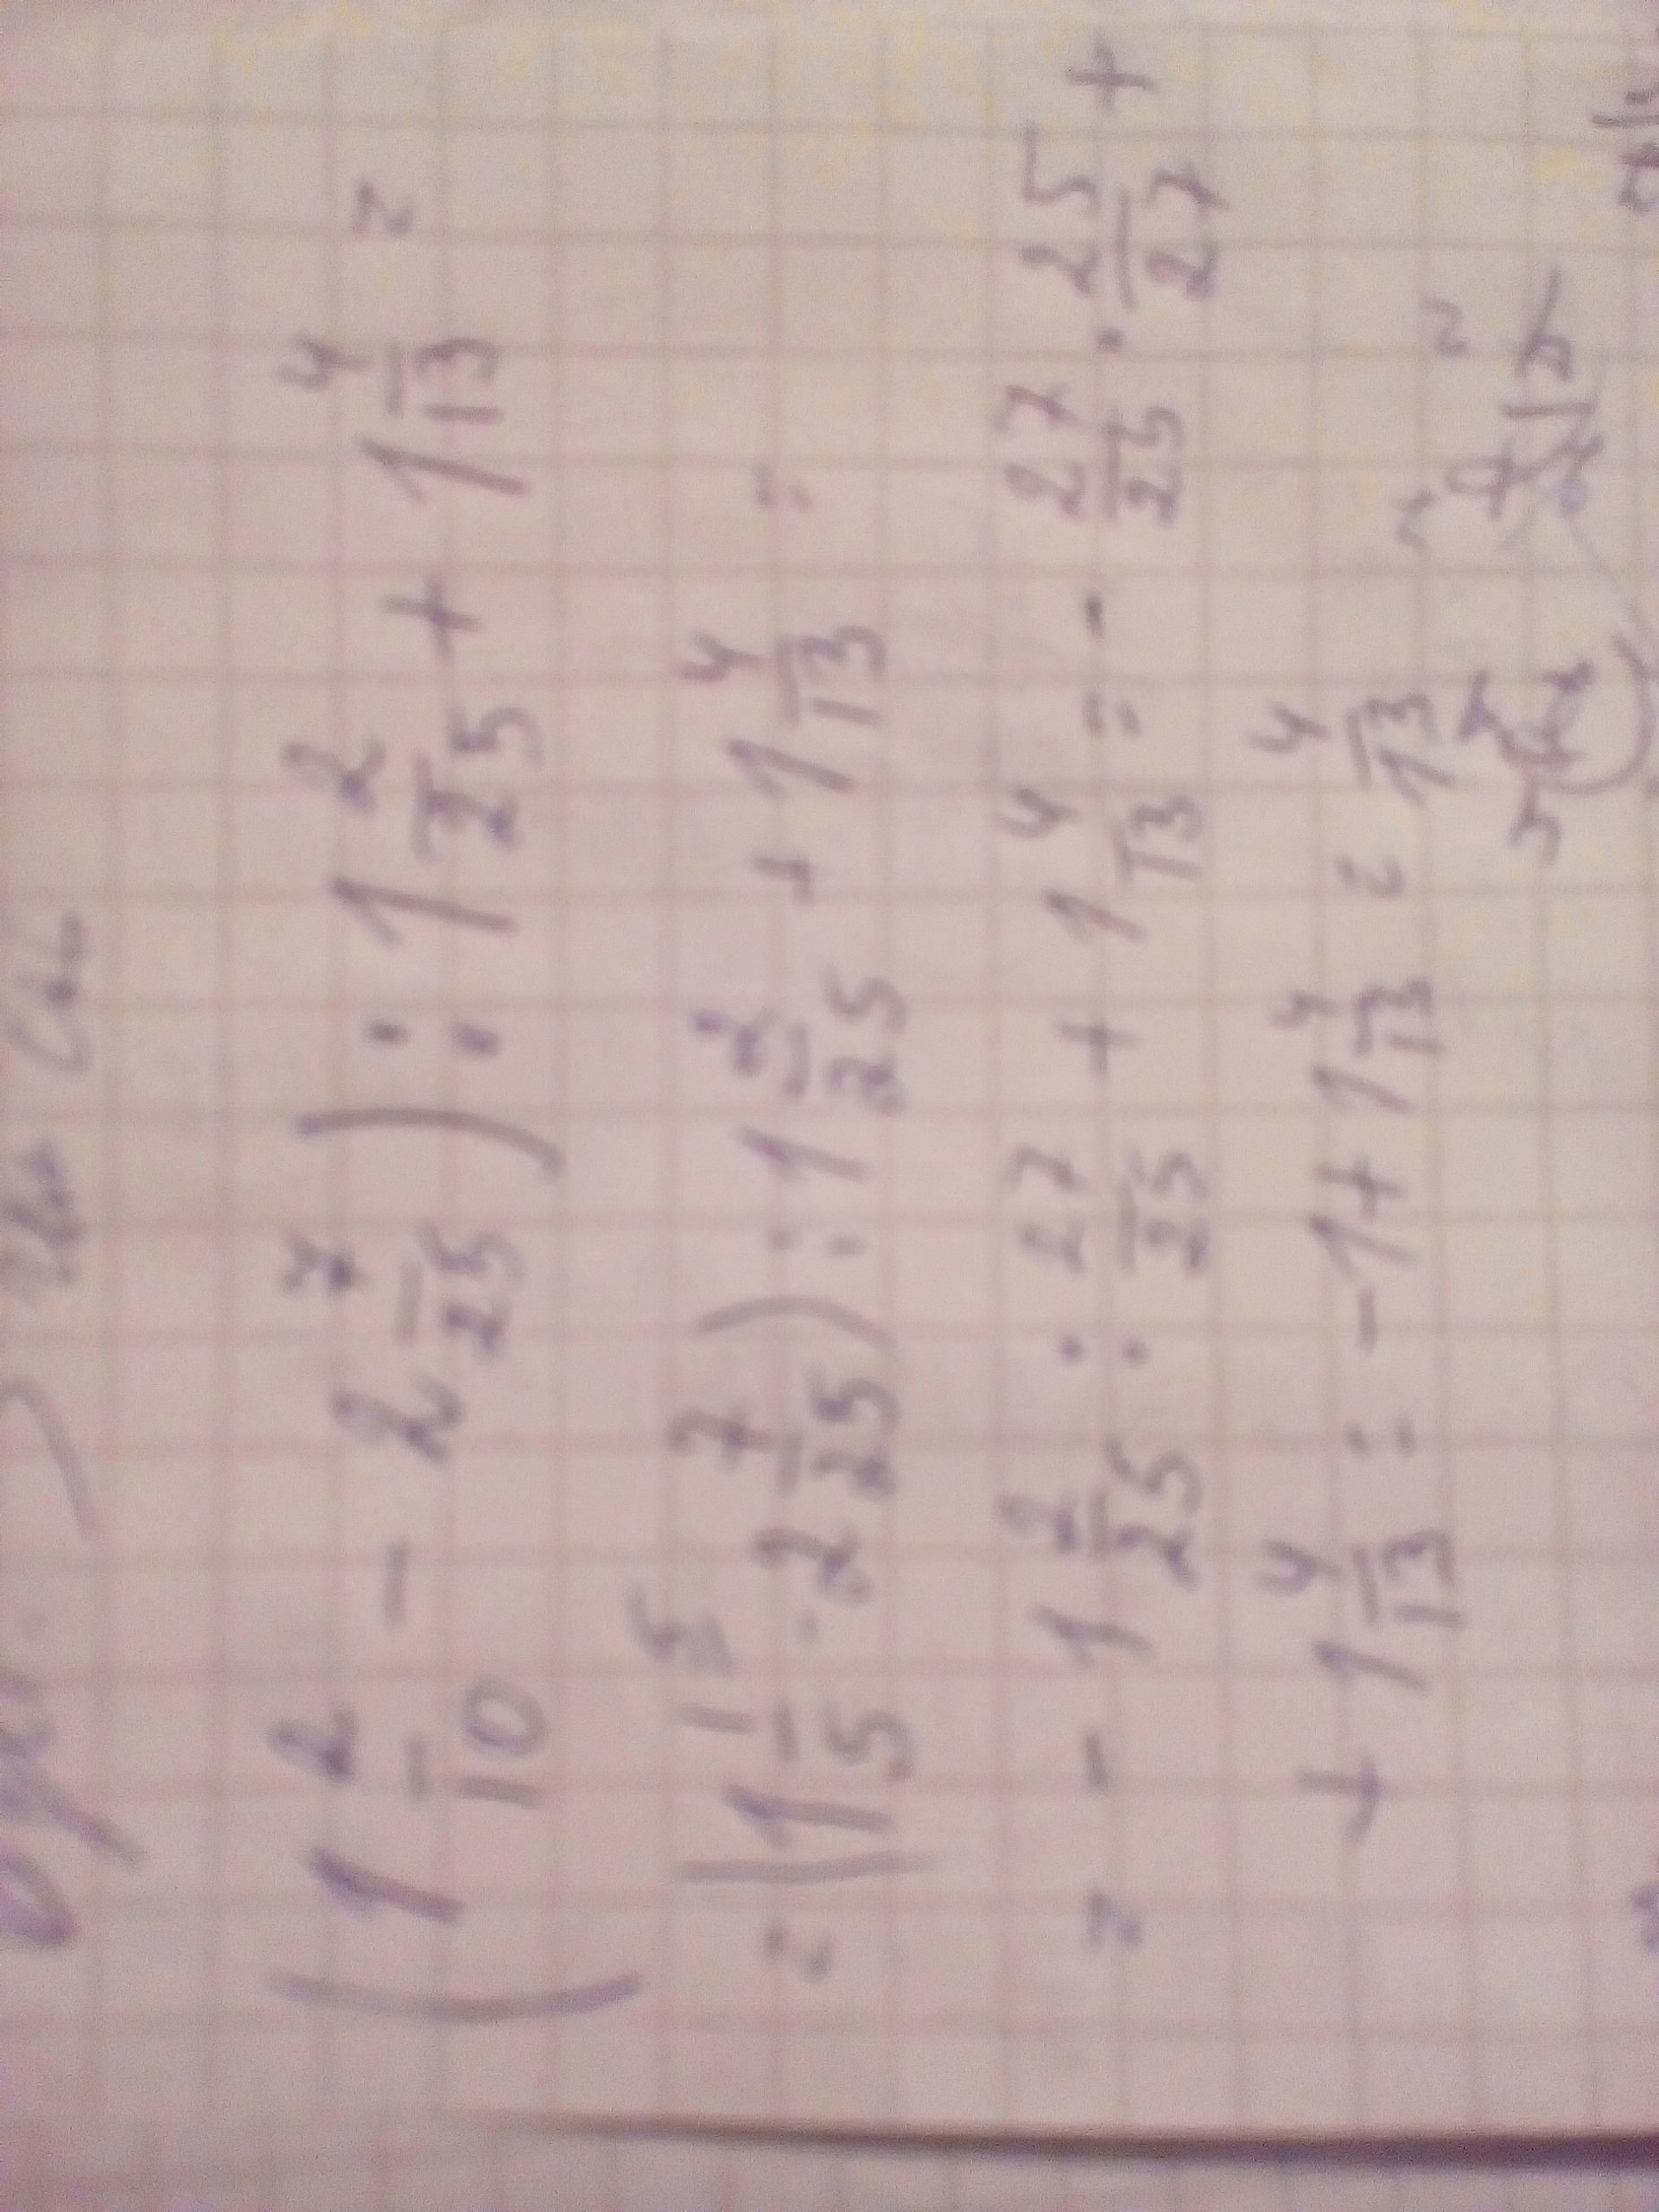 (1 2/10 - 2 7/25) : 1 2/25 + 1 4/13 =
= (1 1/5 - 2 7/25) : 1 2/25 + 1 4/13 =
= - 1 2/25 : 27/25 + 1 4/13 = - 27/25 · 25/27 +
+ 1 4/13 = -1 + 1 4/13 = 4/13